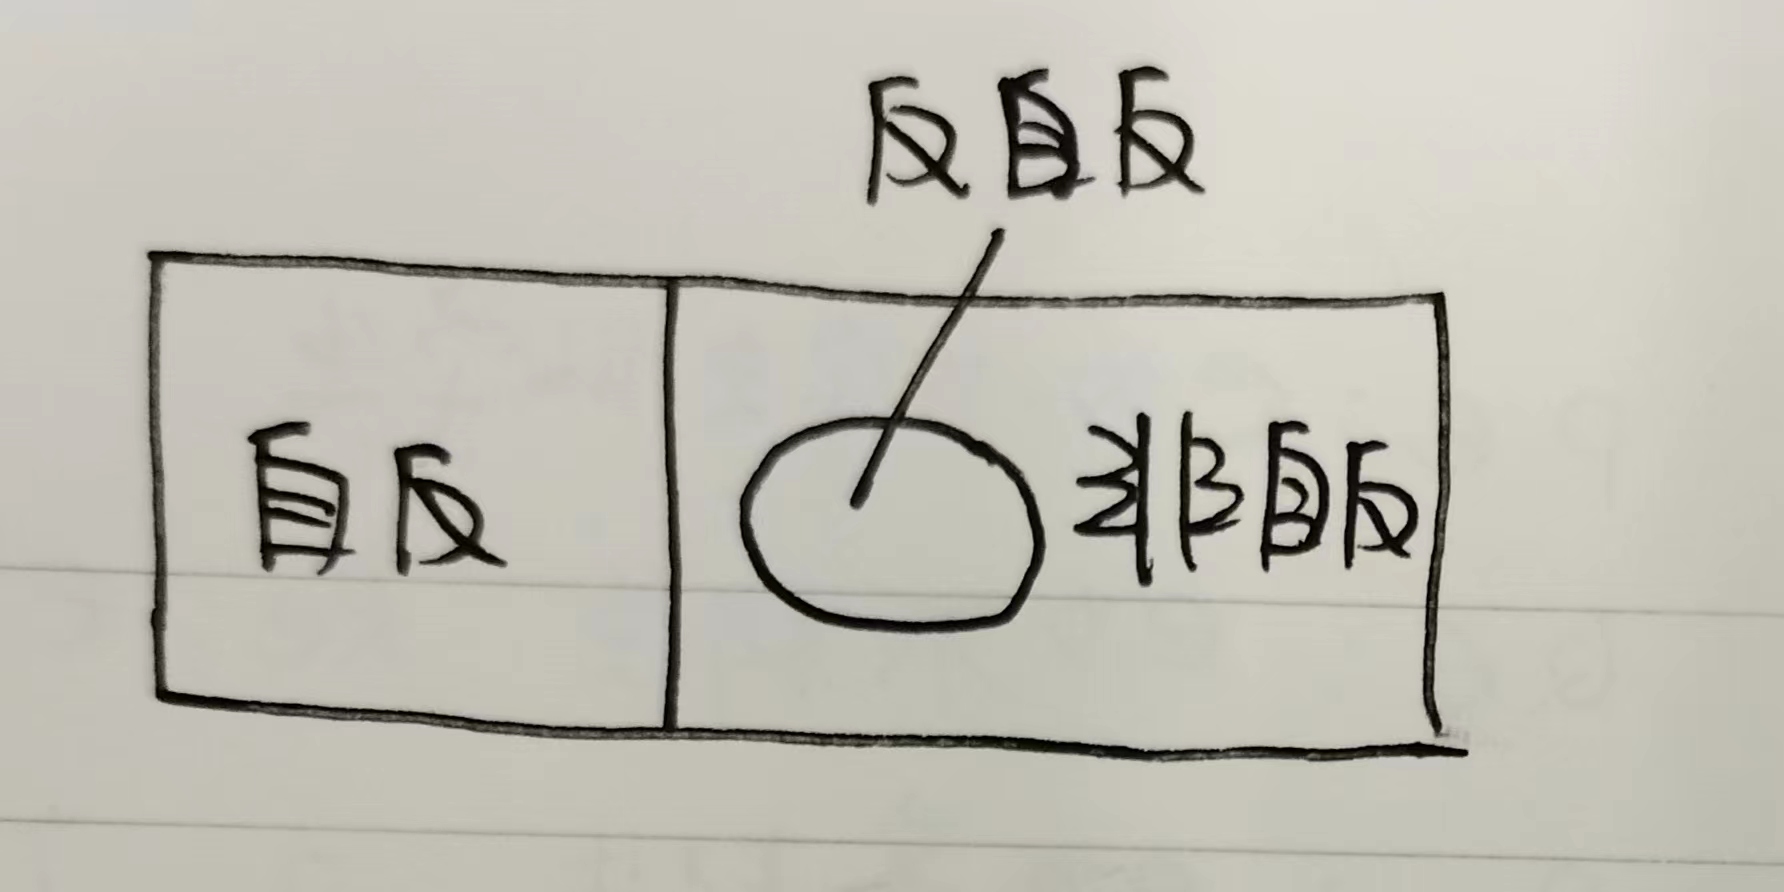 反自反
自反
非自反